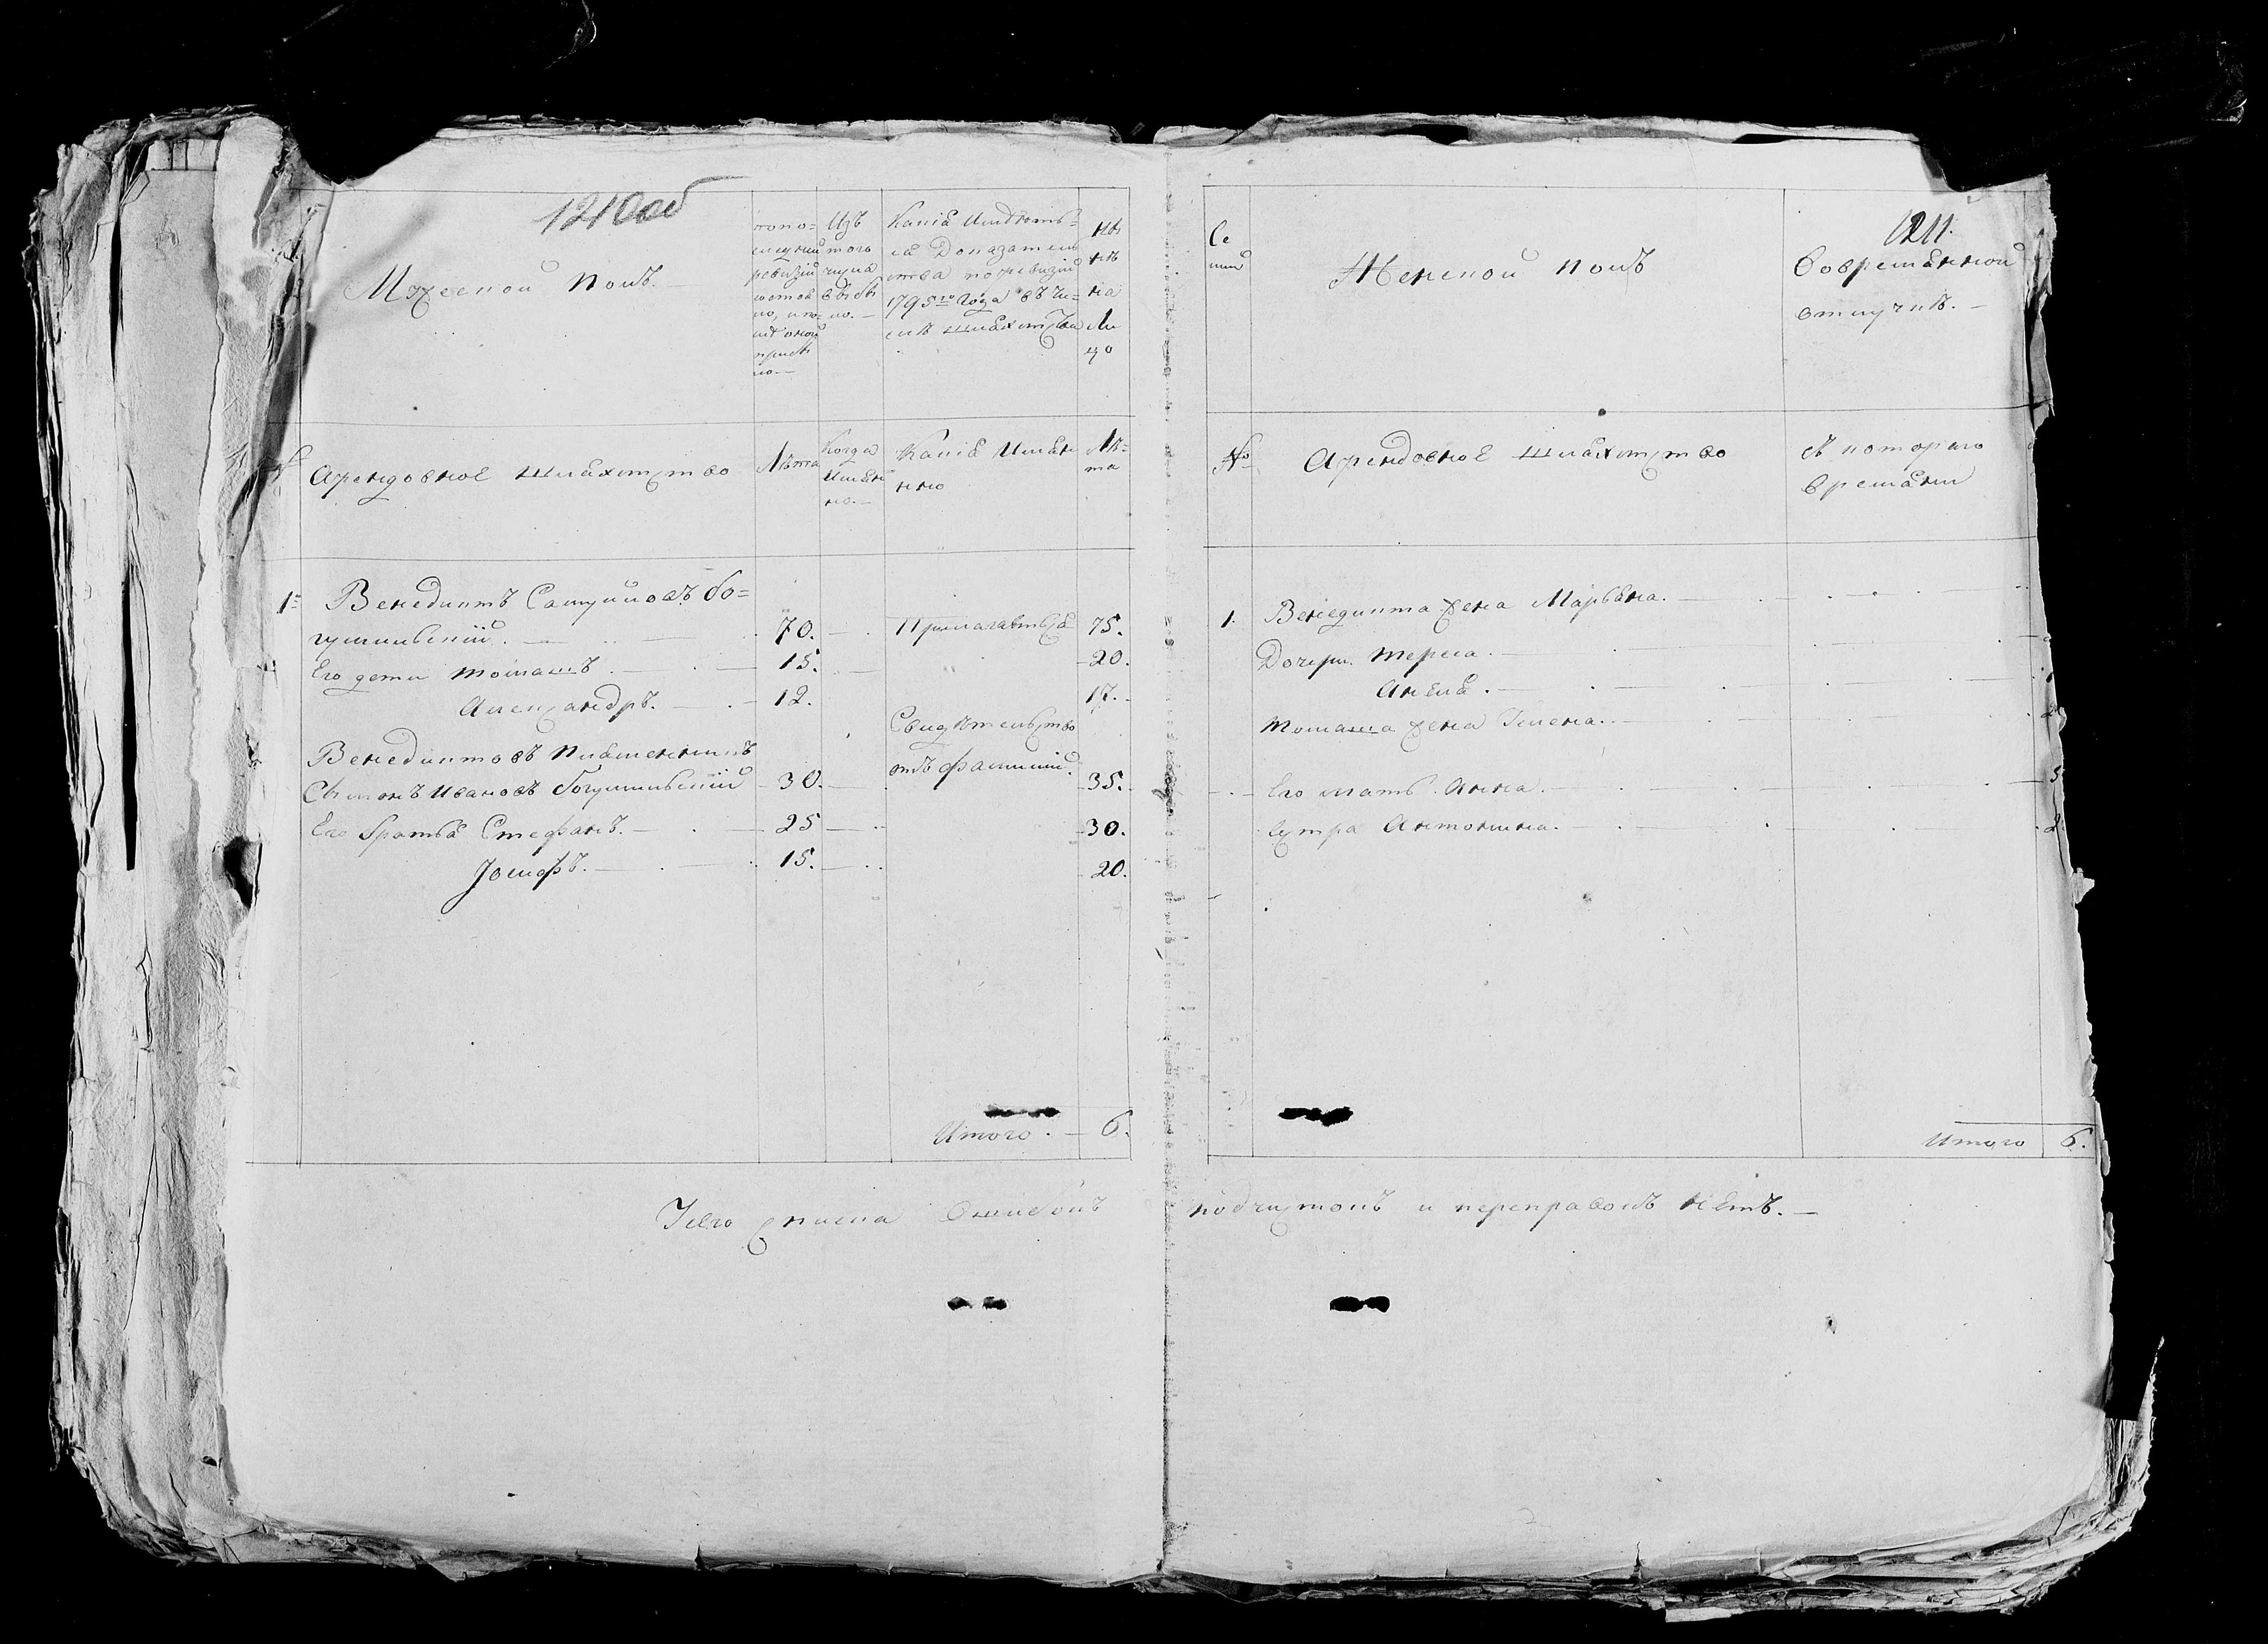 1210об
Мужескои полъ.
попо-
следней
ревизіи
состоя
ло, и по-
слѣ оной
прибы
ло.—
Изъ
того
числа
выбы
ло.—
Какія Имѣютъ-
ся Доказатель
ства поревизіи
1795го Года въ Чи-
слѣ шляхетства
Ны
нѣ
на
Ли
цо
Арендовное шляхетство
Лѣта
Когда
Имянно
но.—
Какія Имян
нно
Лѣ-
та
1= Венедиктъ Самуиловъ Бо-
гушивский. 70. Прилагается 75.
Его дети Томашъ. 15. 20.
Александръ. 12. 17.
Свидѣтельство
Венедиктовъ Племенникъ
отъ фамилии.
Сымонъ Ивановъ Богушивский 30. 35.
Его братья Стефанъ. 25 30.
Јосифъ. 15. 20.
Итого. 6.
1211.
Се
мьи
Женской полъ
Вовремянной
отлучкѣ.—
№
Арендовное шляхетство
съ которого
времяни
1. Венедикта жена Марьяна.
Дочери. Тереса.
Анеля.
Томаша жена Гилена.
Его мать. Анна.
Сестра Антонина.
Итого 6.
Усего списка Ошибокъ подчистокъ и переправокъ нетъ.—